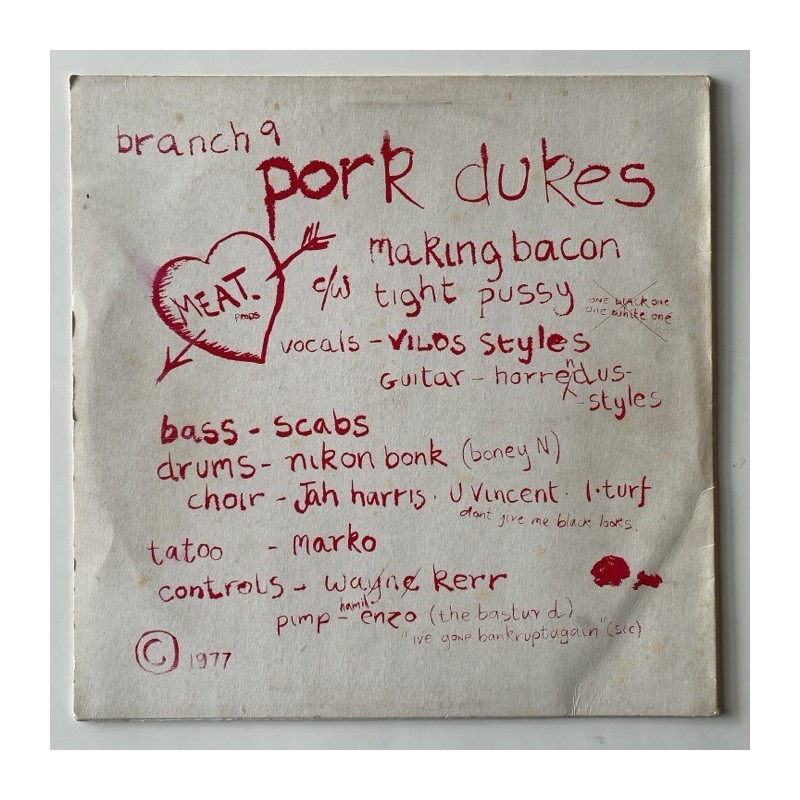 branch 9
pork dukes
making bacon
MEAT.
PRODS
c/w tight pussy
ONE BLACK ONE
ONE white ONE
vocals - VILOS styles
Guitar - horrendus-
-styles
bass - scabs
drums - nikon bonk (boney N)
choir - Jah harris. U Vincent. I. turf
dont give me black looks.
tatoo - marko
controls - wayne kerr
hamil
pimp - enzo (the basturd)
"ive gone bankrupt again" (sic)
© 1977